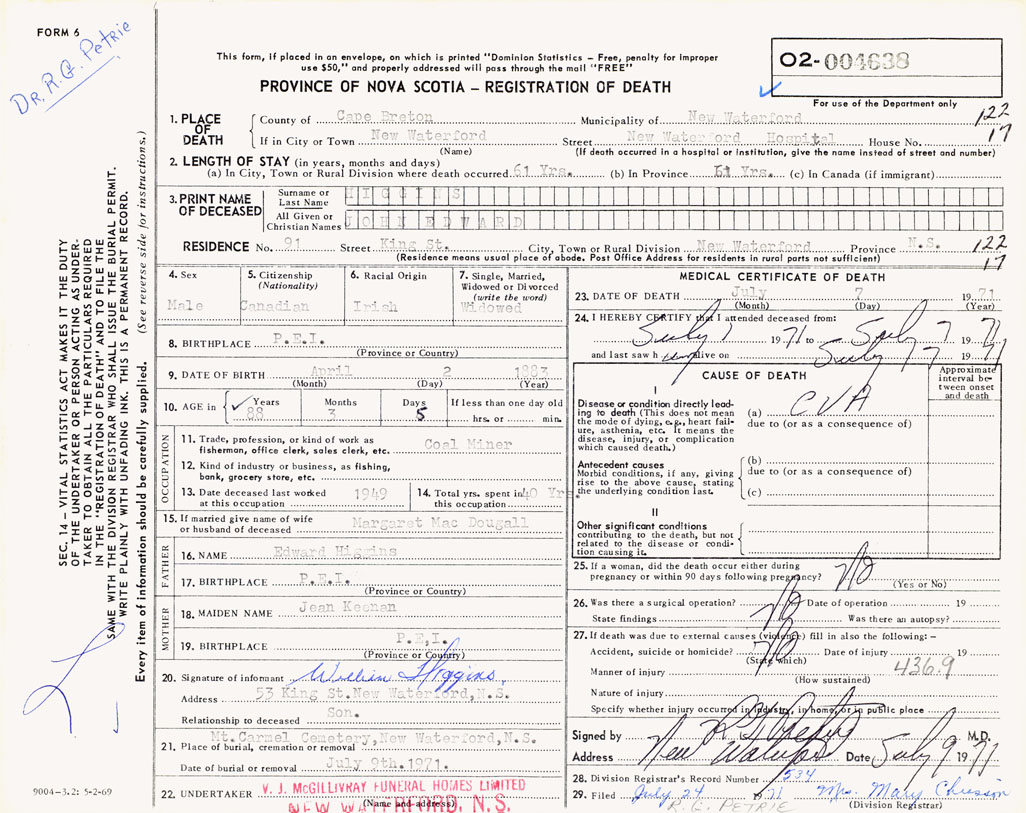 FORM 6
DR. R.G. PETRIE
This form, if placed in an envelope, on which is printed "Dominion Statistics – Free, penalty for improper
use $50," and properly addressed will pass through the mail "FREE"
PROVINCE OF NOVA SCOTIA – REGISTRATION OF DEATH
02-004638
For use of the Department only
1. PLACE OF DEATH
County of Cape Breton Municipality of New Waterford 122
If in City or Town New Waterford Street New Waterford Hospital House No. 17
(Name) (If death occurred in a hospital or institution, give the name instead of street and number)
2. LENGTH OF STAY (in years, months and days)
(a) In City, Town or Rural Division where death occurred 61 Yrs. (b) In Province 61 Yrs. (c) In Canada (if immigrant)
3. PRINT NAME OF DECEASED
Surname or Last Name HIGGINS
All Given or Christian Names JOHN EDWARD
RESIDENCE No. 91 Street King St. City, Town or Rural Division New Waterford Province N.S. 122
(Residence means usual place of abode. Post Office Address for residents in rural parts not sufficient) 17
4. Sex
Male
5. Citizenship
(Nationality)
Canadian
6. Racial Origin
Irish
7. Single, Married,
Widowed or Divorced
(write the word)
Widowed
8. BIRTHPLACE P.E.I.
(Province or Country)
9. DATE OF BIRTH April 2 1883
(Month) (Day) (Year)
10. AGE in Years Months Days If less than one day old
88 3 5 hrs. or min.
OCCUPATION
11. Trade, profession, or kind of work as
fisherman, office clerk, sales clerk, etc. Coal Miner
12. Kind of industry or business, as fishing,
bank, grocery store, etc.
13. Date deceased last worked
at this occupation 1949
14. Total yrs. spent in
this occupation 40 Yrs.
15. If married give name of wife
or husband of deceased Margaret Mac Dougall
FATHER
16. NAME Edward Higgins
17. BIRTHPLACE P.E.I.
(Province or Country)
MOTHER
18. MAIDEN NAME Jean Keenan
19. BIRTHPLACE P.E.I.
(Province or Country)
20. Signature of informant William Higgins.
Address 53 King St.New Waterford,N.S.
Relationship to deceased Son.
Mt.Carmel Cemetery,New Waterford,N.S.
21. Place of burial, cremation or removal
Date of burial or removal July 9th.1971.
22. UNDERTAKER V. J. McGILLIVRAY FUNERAL HOMES LIMITED
(Name and address) NEW WATERFORD, N. S.
MEDICAL CERTIFICATE OF DEATH
23. DATE OF DEATH July 7 1971
(Month) (Day) (Year)
24. I HEREBY CERTIFY that I attended deceased from:
July 1 1971 to July 7 71
and last saw him alive on July 7 1971
CAUSE OF DEATH
Approximate
interval be-
tween onset
and death
I
Disease or condition directly lead-
ing to death (This does not mean
the mode of dying, e.g., heart fail-
ure, asthenia, etc. It means the
disease, injury, or complication
which caused death.)
(a) CVA
due to (or as a consequence of)
Antecedent causes
Morbid conditions, if any, giving
rise to the above cause, stating
the underlying condition last.
(b)
due to (or as a consequence of)
(c)
II
Other significant conditions
contributing to the death, but not
related to the disease or condi-
tion causing it.
25. If a woman, did the death occur either during
pregnancy or within 90 days following pregnancy? No
(Yes or No)
26. Was there a surgical operation? No Date of operation 19
State findings Was there an autopsy?
27. If death was due to external causes (violence) fill in also the following: –
Accident, suicide or homicide? No Date of injury 19
(State which)
Manner of injury 436.9
(How sustained)
Nature of injury
Specify whether injury occurred in industry, in home, or in public place
Signed by M.D.
Address New Waterford Date July 9 1971
28. Division Registrar's Record Number 534
29. Filed July 24 1971 Mrs. Mary
R. G. PETRIE (Division Registrar)
SEC. 14 – VITAL STATISTICS ACT MAKES IT THE DUTY
OF THE UNDERTAKER OR PERSON ACTING AS UNDER-
TAKER TO OBTAIN ALL THE PARTICULARS REQUIRED
IN THE "REGISTRATION OF DEATH" AND TO FILE THE
SAME WITH THE DIVISION REGISTRAR WHO SHALL ISSUE THE BURIAL PERMIT.
WRITE PLAINLY WITH UNFADING INK. THIS IS A PERMANENT RECORD.
Every item of information should be carefully supplied. (See reverse side for instructions.)
9004–3.2: 5-2-69